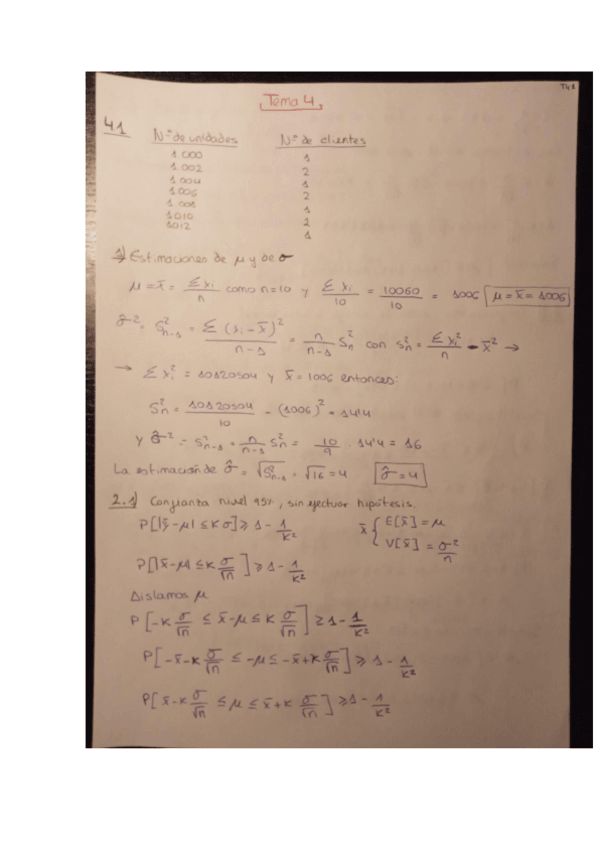 T4.1
Tema 4
4.1
Nº de unidades Nº de clientes
1.000 1
1.002 2
1.004 1
1.006 2
1.008 1
1.010 2
1012 1
1) Estimaciones de μ y de σ
μ = x̄ = Σxi/n como n=10 y Σxi/10 = 10060/10 = 1006 μ = x̄ = 1006
σ̂² = S²n-1 = Σ(xi - x̄)²/(n-1) = n/(n-1) S²n con S²n = Σxi²/n - x̄² →
→ Σxi² = 10120504 y x̄ = 1006 entonces:
S²n = 10120504/10 - (1006)² = 14'4
y σ̂² = S²n-1 = n/(n-1) S²n = 10/9 · 14'4 = 16
La estimación de σ̂ = √S²n-1 = √16 = 4 σ̂ = 4
2.1) Confianza nivel 95%, sin efectuar hipótesis.
P[|x̄ - μ| ≤ K σ] ≥ 1 - 1/K² x̄ { E[x̄] = μ
V[x̄] = σ²/n
P[|x̄ - μ| ≤ K σ/√n] ≥ 1 - 1/K²
Aislamos μ
P[-K σ/√n ≤ x̄ - μ ≤ K σ/√n] ≥ 1 - 1/K²
P[-x̄ - K σ/√n ≤ -μ ≤ -x̄ + K σ/√n] ≥ 1 - 1/K²
P[x̄ - K σ/√n ≤ μ ≤ x̄ + K σ/√n] ≥ 1 - 1/K²